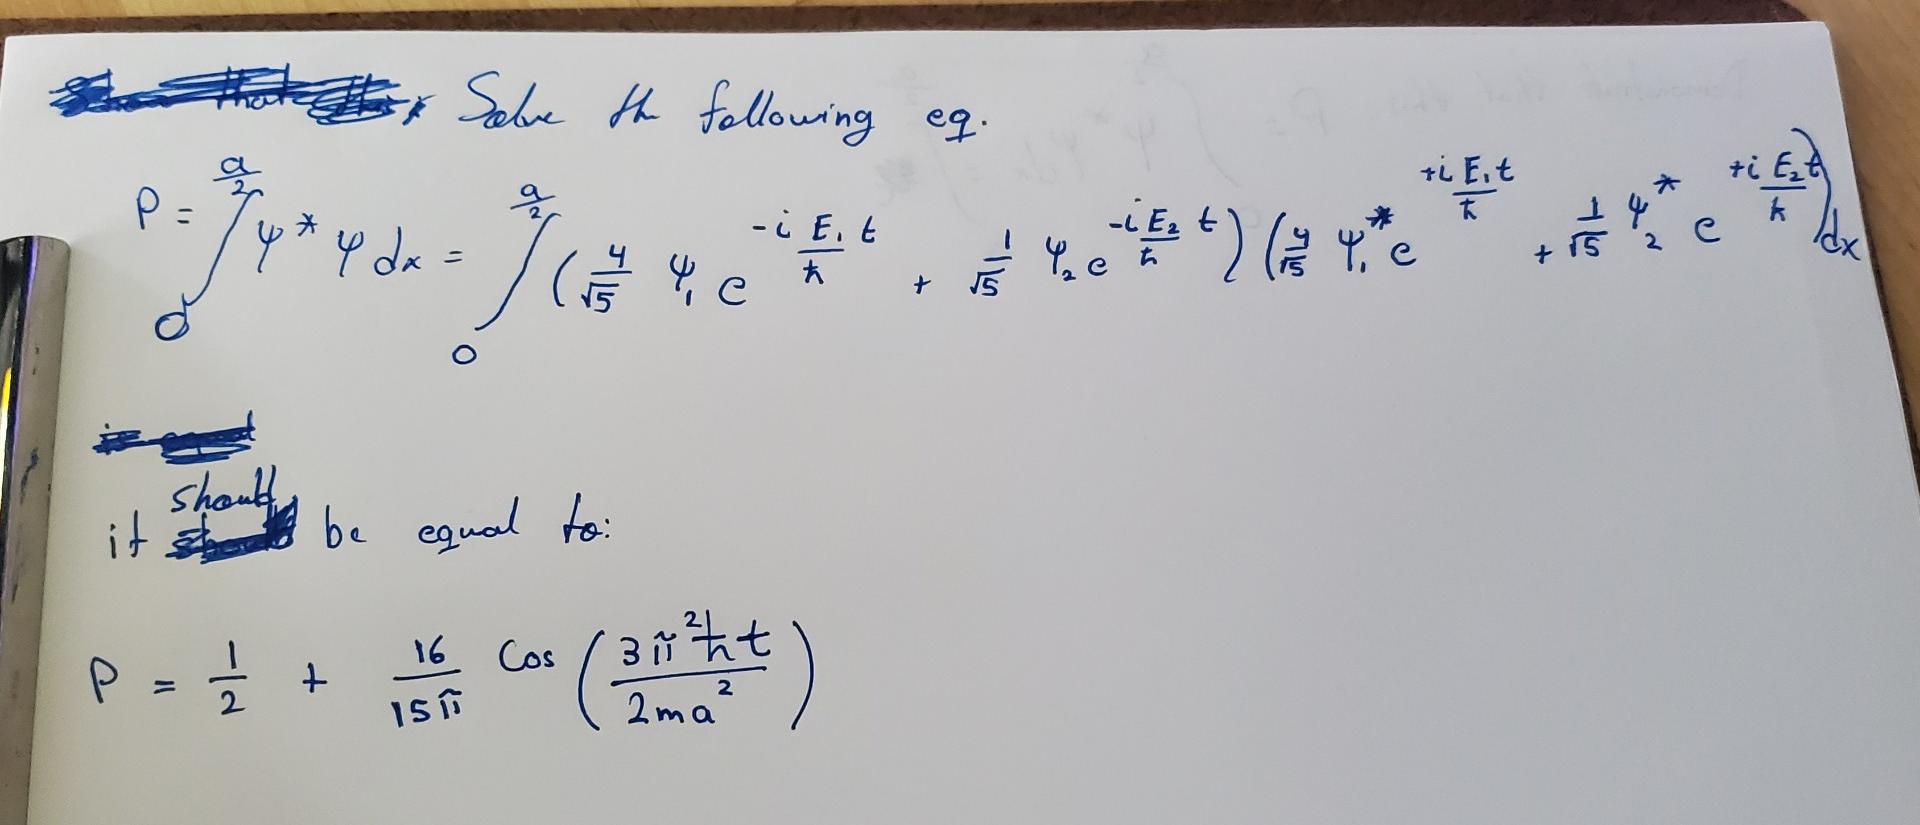 Solve the following eq.
P = ∫₀^{a/2} ψ* ψ dx = ∫₀^{a/2} (4/√5 ψ₁ e^{-i E₁ t/ħ} + 1/√5 ψ₂ e^{-i E₂ t/ħ}) (4/√5 ψ₁* e^{+i E₁ t/ħ} + 1/√5 ψ₂* e^{+i E₂ t/ħ}) dx
it should be equal to:
P = 1/2 + 16/15π Cos (3π²ħt / 2ma²)